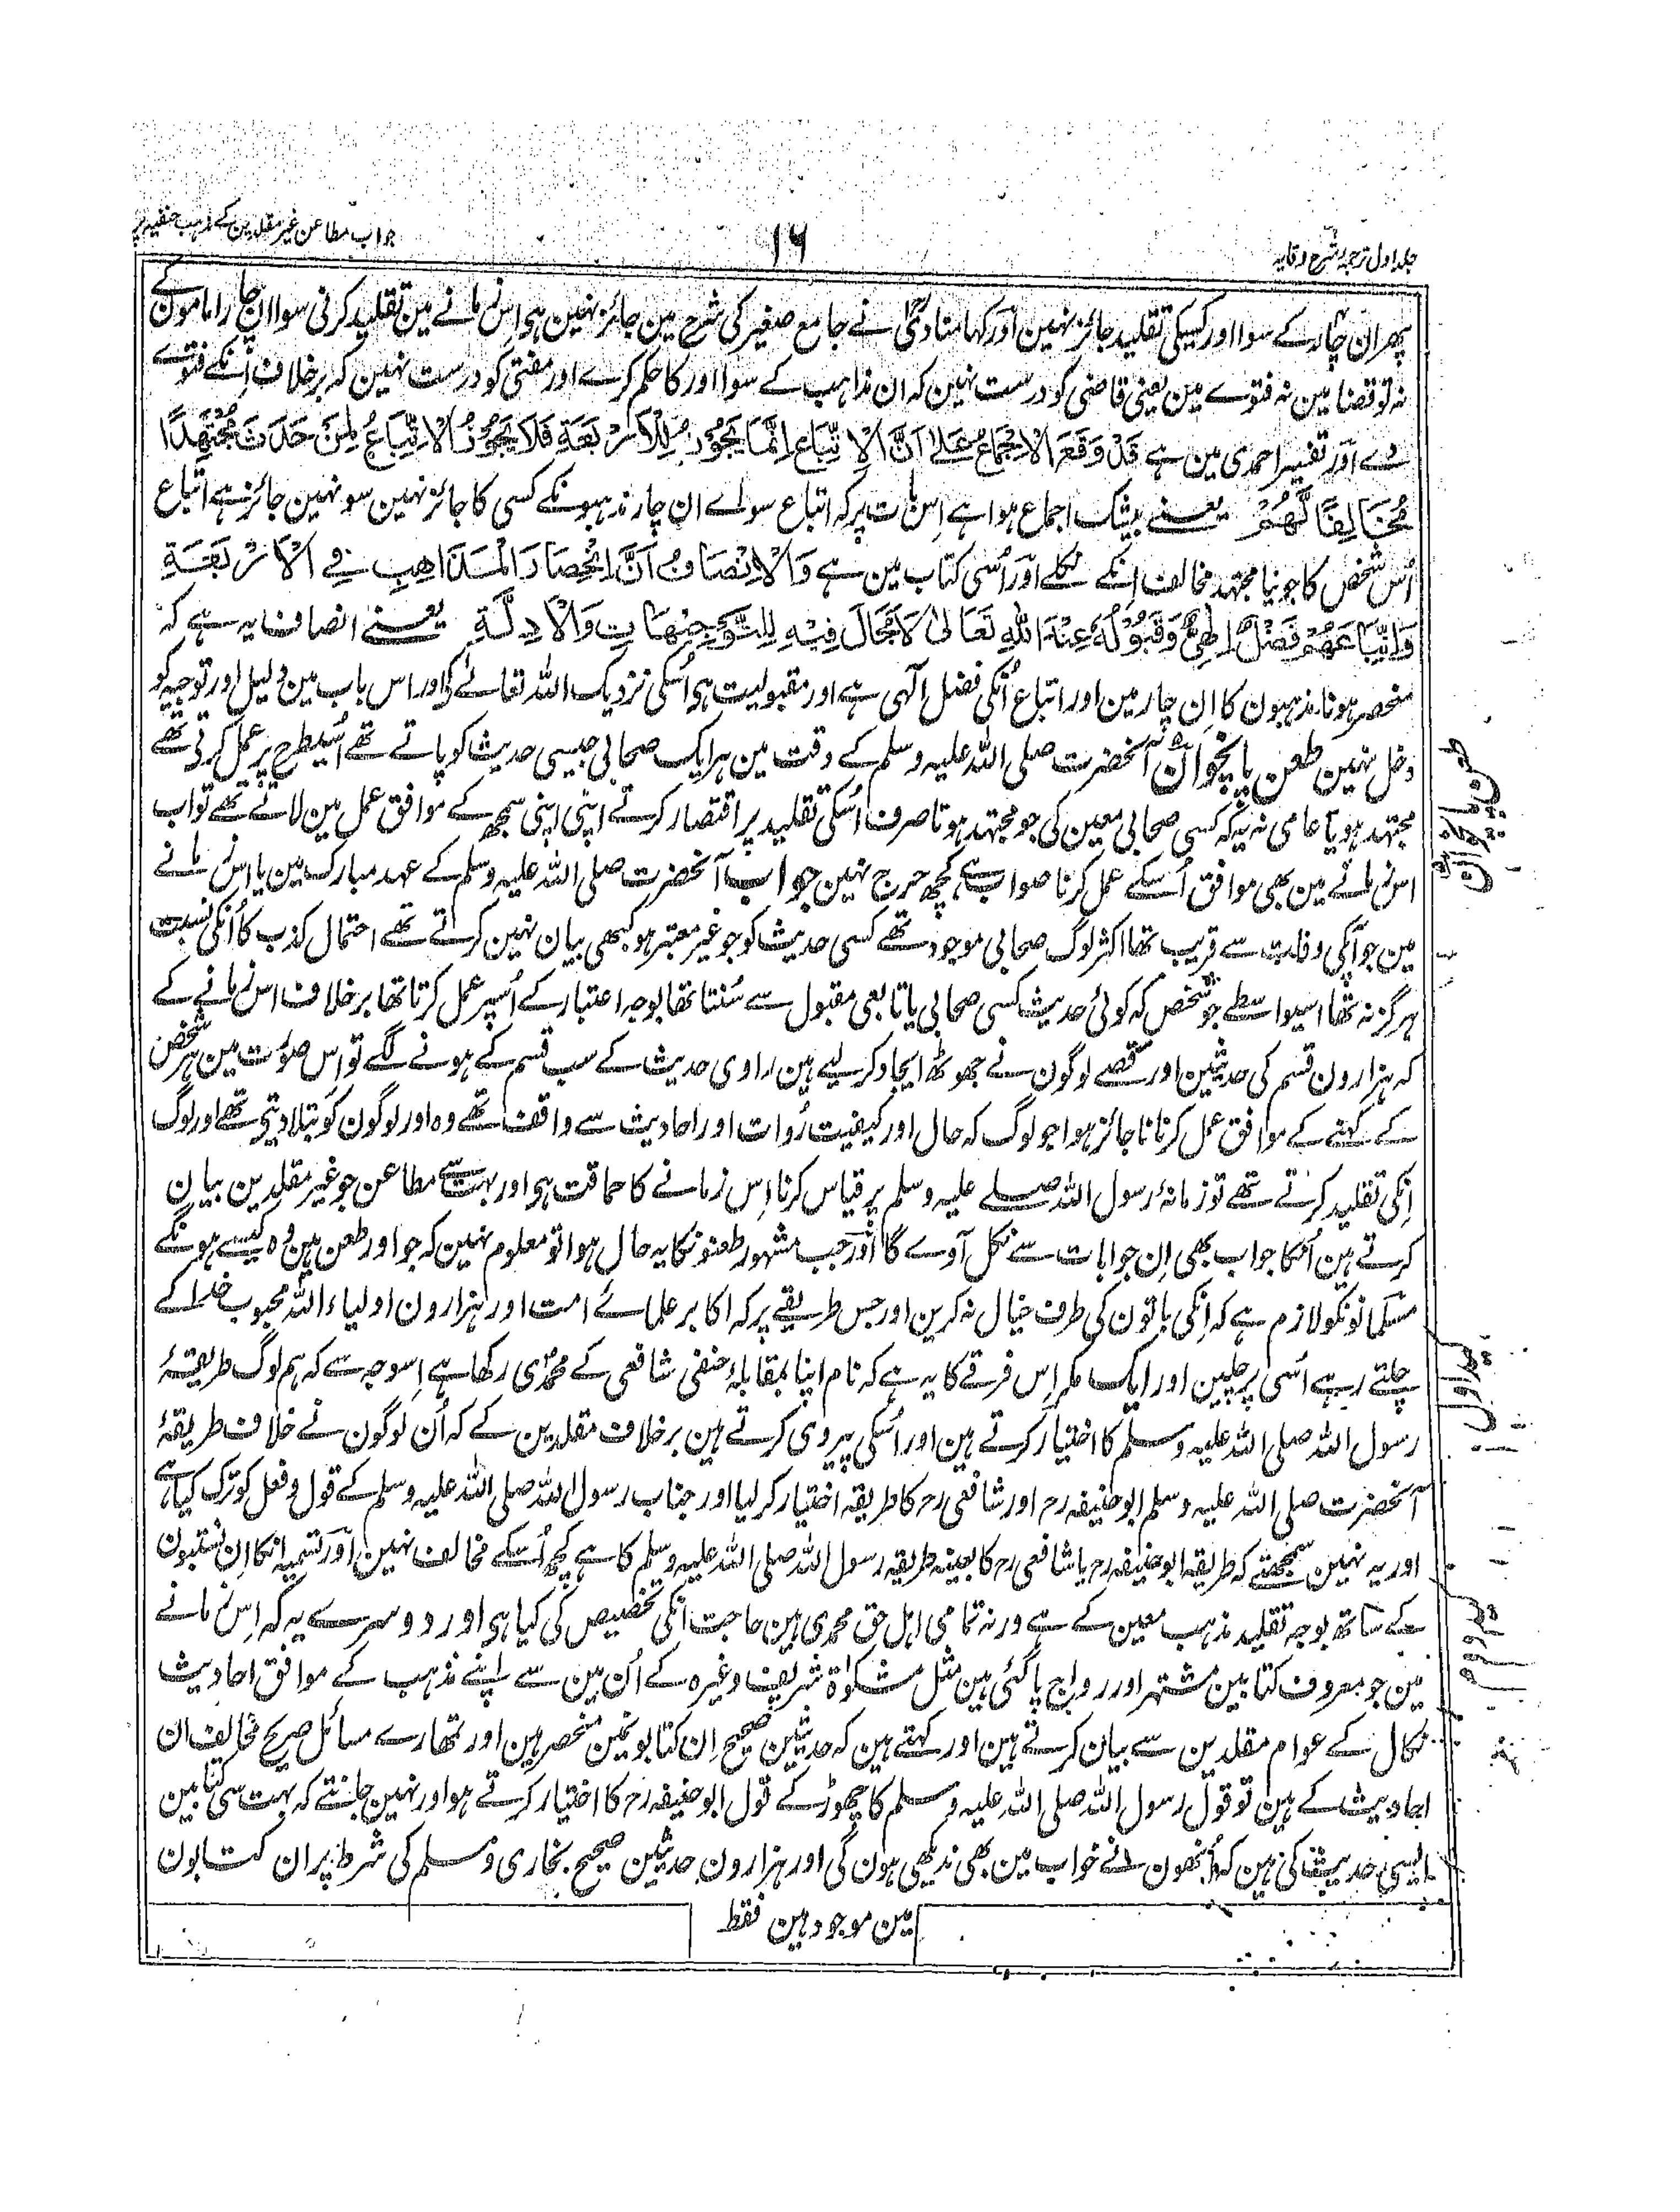 جلد اول ترجمہ شرح وقایہ
۱۶
جواب مطاعن غیر مقلدین کے مذہب حنفیہ پر
پھر ان چار کے سوا اور کسیکی تقلید جائز نہین اور کہا مناوی نے جامع صغیر کی شرح مین جائز نہین ہی اس زمانے مین تقلید کرنی سوا ان چار امامون کے
نہ تو قضا مین نہ فتوے مین یعنی قاضی کو درست نہین کہ ان مذاہب کے سوا اور کا حکم کرے اور مفتی کو درست نہین کہ برخلاف انکے فتوے
دے اور تفسیر احمدی مین ہے قَدْ وَقَعَ الْاِجْمَاعُ عَلٰی اَنَّ الْاِتِّبَاعَ اِنَّمَا یَجُوْزُ لِلْاَرْبَعَةِ فَلَا یَجُوْزُ الْاِتِّبَاعُ لِمَنْ حَدَثَ مُجْتَهِدًا
مُخَالِفًا لَّهُمْ یعنے بیشک اجماع ہوا ہے اس بات پر کہ اتباع سواے ان چار مذہبونکے کسی کا جائز نہین سو نہین جائز ہے اتباع
اُس شخص کا جو نیا مجتہد مخالف انکے نکلے اور اُسی کتاب مین ہے وَالْاِنْصَافُ اَنَّ اِنْحِصَارَ الْمَذَاهِبِ فِی الْاَرْبَعَةِ
وَاتِّبَاعَهُمْ فَضْلٌ اِلٰهِیٌّ وَقَبُوْلُهٗ عِنْدَ اللّٰهِ تَعَالٰی لَا مَجَالَ فِیْهِ لِلتَّوْجِیْهَاتِ وَالْاَدِلَّةِ یعنے انصاف یہ ہے کہ
منحصر ہونا مذہبون کا ان چار مین اور اتباع اُنکی فضل الٰہی ہے اور مقبولیت ہی اُسکی نزدیک اللہ تعالے کے اور اس باب مین دلیل اور توجیہ کو
دخل نہین طعن پانچوان آنحضرت صلی اللہ علیہ وسلم کے وقت مین ہر ایک صحابی جیسی حدیث کو پاتے تھے اُسیطرح پر عمل کرتی تھے
مجتہد ہو یا عامی نہ یہ کہ کسی صحابی معین کی جو مجتہد ہوتا صرف اُسکی تقلید پر اقتصار کرتے اپنی اپنی سمجھ کے موافق عمل مین لاتے تھے تو اب
اس زمانے مین بھی موافق اُسکے عمل کرنا صواب ہے کچھ حرج نہین جواب آنحضرت صلی اللہ علیہ وسلم کے عہد مبارک مین یا اس زمانے
مین جو آپکی وفات سے قریب تھا اکثر لوگ صحابی موجود تھے کسی حدیث کو جو غیر معتبر ہو کبھی بیان نہین کرتے تھے احتمال کذب کا اُنکی نسبت
ہرگز نہ تھا اسیواسطے جو شخص کہ کوئی حدیث کسی صحابی یا تابعی مقبول سے سُنتا تھا بوجہ اعتبار کے اُسپر عمل کرتا تھا برخلاف اس زمانے کے
کہ ہزارون قسم کی حدیثین اور قصے لوگون نے جھوٹھ ایجاد کر لیے ہین راوی حدیث کے سب قسم کے ہونے لگے تو اس صورت مین ہر شخص
کے کہنے کے موافق عمل کرنا ناجائز ہوا جو لوگ کہ حال اور کیفیت رُوات اور احادیث سے واقف تھے وہ اور لوگون کو بتلا دیتی تھے اور لوگ
اِنکی تقلید کرتے تھے تو زمانۂ رسول اللہ صلے علیہ وسلم پر قیاس کرنا اِس زمانے کا حماقت ہی اور بہت سے مطاعن جو غیر مقلدین بیان
کرتے ہین اُنکا جواب بھی ان جوابات سے نکل آوے گا اور جب مشہور طعنونکا یہ حال ہوا تو معلوم نہین کہ جو اور طعن ہین وُہ کیسے ہونگے
مسلمانونکو لازم ہے کہ اِنکی باتون کی طرف خیال نہ کرین اور جس طریقے پر کہ اکابر علمائے امت اور ہزارون اولیاء اللہ محبوب خدا کے
چلتے رہے اُسی پر چلین اور ایک مکر اِس فرقے کا یہ ہے کہ نام اپنا بمقابلۂ حنفی شافعی کے محمدی رکھا ہے اِسوجہ سے کہ ہم لوگ طریقۂ
رسول اللہ صلی اللہ علیہ وسلم کا اختیار کرتے ہین اور اُسکی پیروی کرتے ہین برخلاف مقلدین کے کہ اُن لوگون نے خلاف طریقۂ
آنحضرت صلی اللہ علیہ وسلم ابو حنیفہ رح اور شافعی رح کا طریقہ اختیار کر لیا اور جناب رسول اللہ صلی اللہ علیہ وسلم کے قول و فعل کو ترک کیا ہے
اور یہ نہین سمجھتے کہ طریقہ ابو حنیفہ رح یا شافعی رح کا بعینہ طریقہ رسول اللہ صلی اللہ علیہ وسلم کا ہے کچھ اُسکے مخالف نہین اور تسمیہ انکا اِن نسبتون
کے ساتھ بوجہ تقلید مذہب معین کے ہے ورنہ تمامی اہل حق محمدی ہین حاجت انکی تخصیص کی کیا ہی اور دوسرے یہ کہ اِس زمانے
مین جو معروف کتابین مشتہر اور رواج پا گئی ہین مثل مشکوٰۃ شریف وغیرہ کے اُن مین سے اپنے مذہب کے موافق احادیث
نکال کے عوام مقلدین سے بیان کرتے ہین اور کہتے ہین کہ حدیثین صحیح اِن کتابونمین منحصر ہین اور تمھارے مسائل صریح مخالف ان
احادیث کے ہین تو قول رسول اللہ صلی اللہ علیہ وسلم کا چھوڑ کے قول ابو حنیفہ رح کا اختیار کرتے ہو اور نہین جانتے کہ بہت سی کتابین
ایسی حدیث کی ہین کہ اُنھون نے خواب مین بھی ندیکھی ہون گی اور ہزارون حدیثین صحیح بخاری و مسلم کی شرط پر ان کتابون
مین موجود ہین فقط
طعن پانچوان
مکر اول
مکر دوم